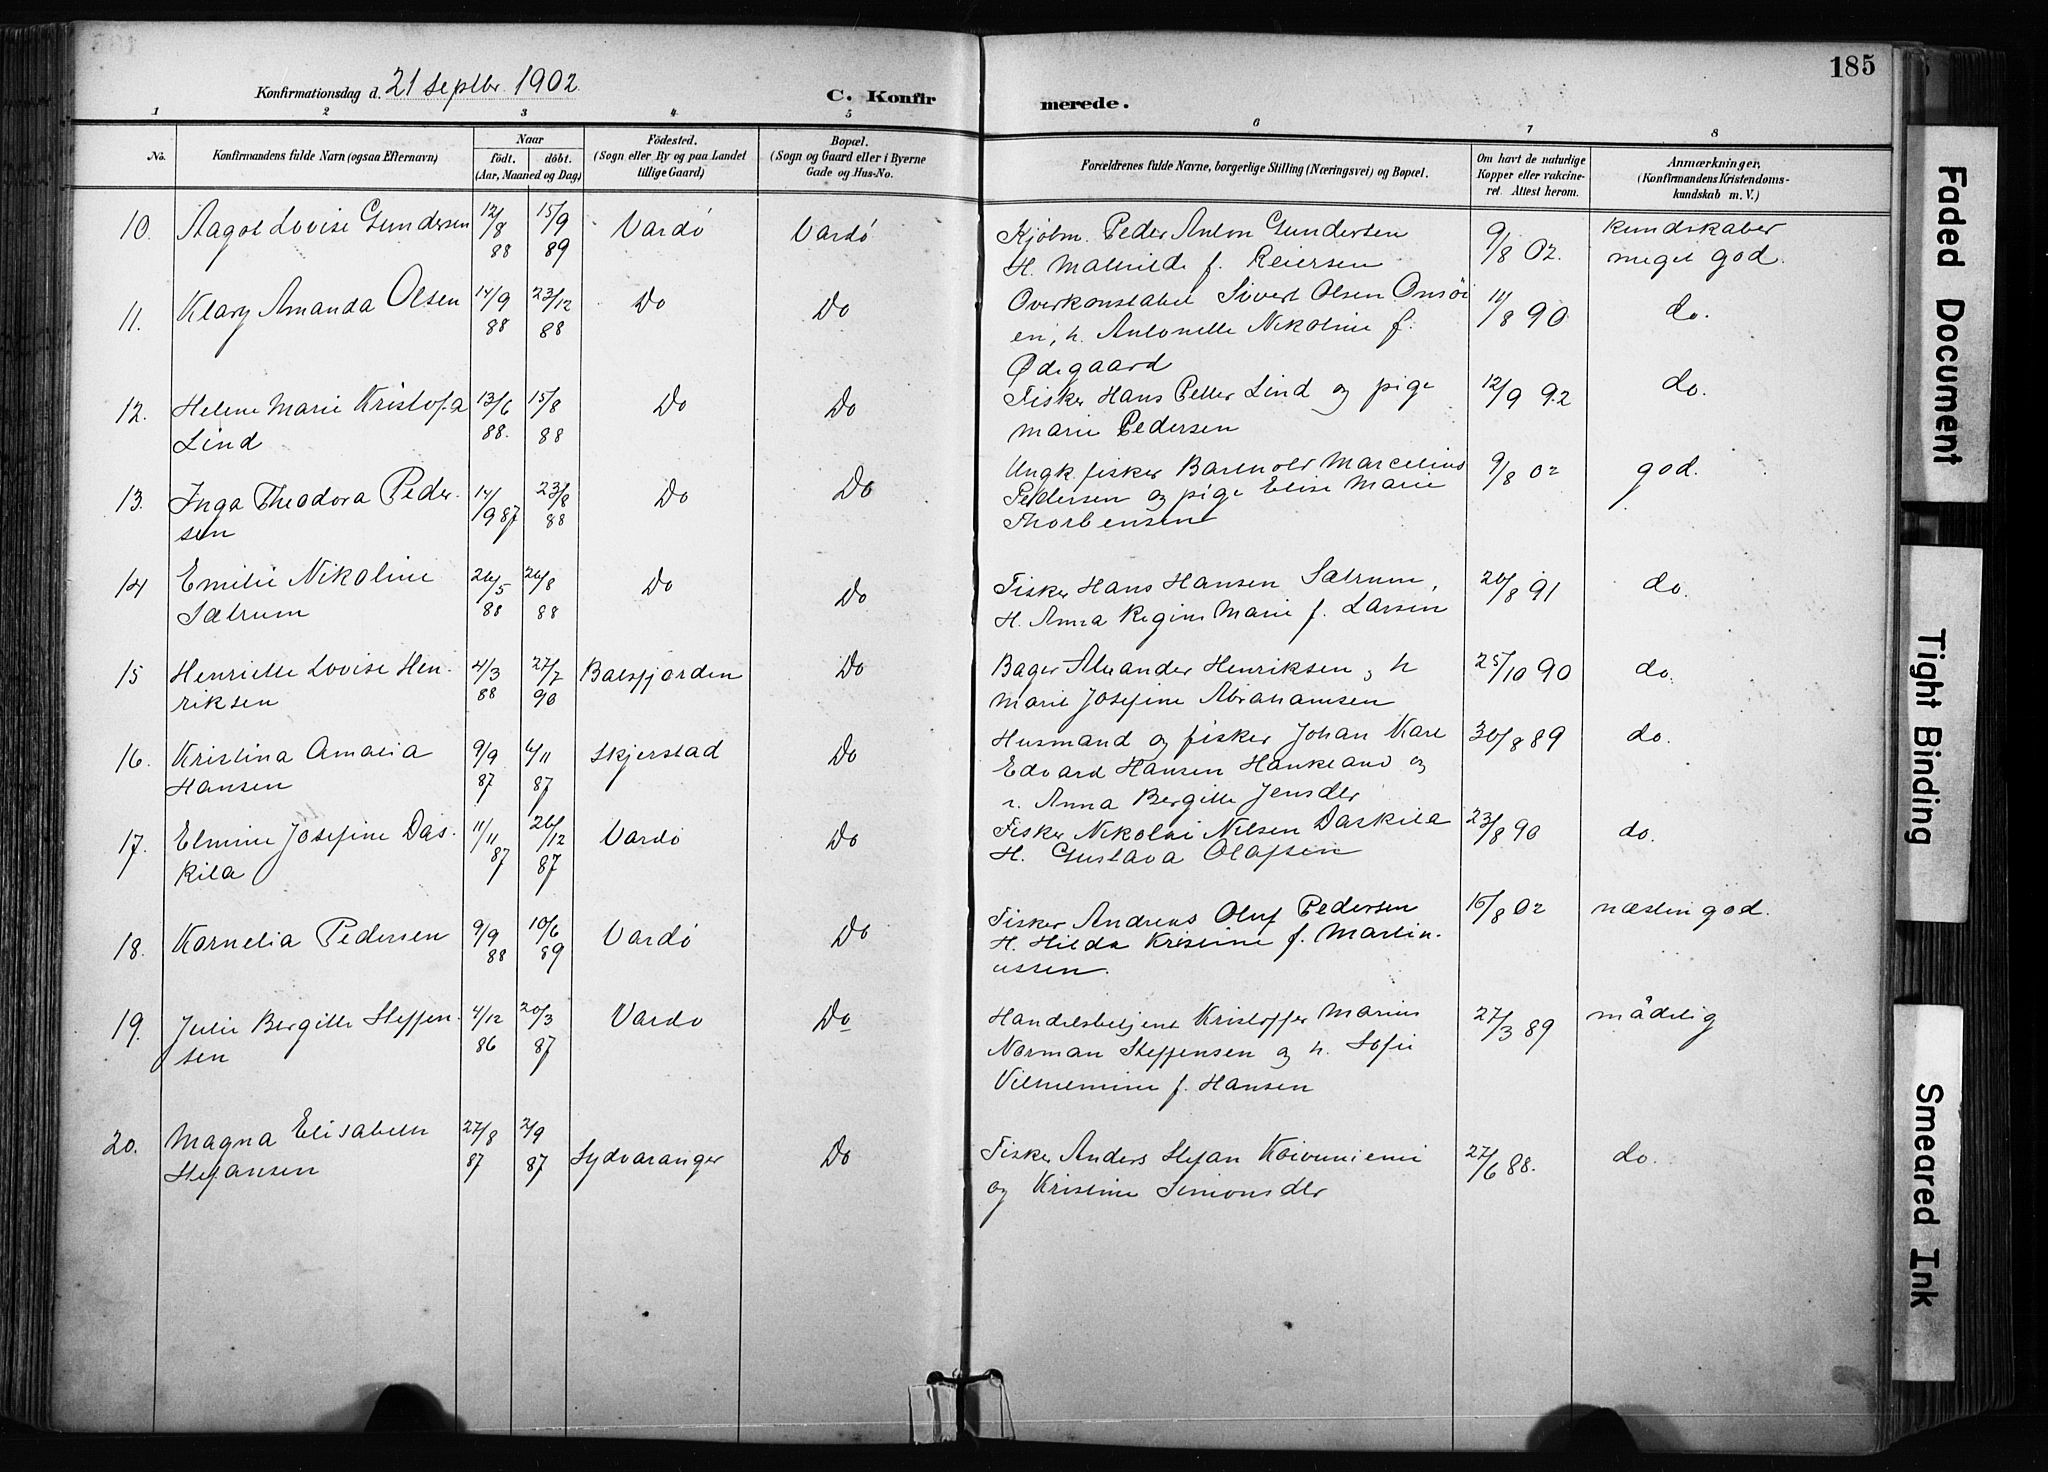 185
Konfirmationsdag d. 21 Septbr. 1902.
C. Konfir
merede.
1 2 3 4 5 6 7 8
No.
Konfirmandens fulde Navn (ogsaa Efternavn)
Naar
født. døbt.
(Aar, Maaned og Dag)
Fødested.
(Sogn eller By og paa Landet
tillige Gaard)
Bopæl.
(Sogn og Gaard eller i Byerne
Gade og Hus-No.
Forældrenes fulde Navne, borgerlige Stilling (Næringsvei) og Bopæl.
Om havt de naturlige
Kopper eller vakcine-
ret. Attest herom.
Anmærkninger,
(Konfirmandens Kristendoms-
kundskab m. V.)
10. Aagot Lovise Gundersen 12/8 88 15/9 89 Vardö Vardö
Kjöbm. Peder Anton Gundersen 9/8 02. Kundskaber
H. Mathilde f. Reiersen meget god.
11. Klary Amanda Olsen 14/9 88 23/12 88 Do Do
Overkonstabel Sivert Olsen Onsöi 11/8 90 do.
en, h. Antonette Nikoline f.
Ødegaard
12. Helene Marie Kristofa 13/6 88. 15/8 88 Do Do
Lind
Fisker Hans Petter Lind og pige 12/9 92 do.
Marie Pedersen
13. Inga Theodora Peder- 14/9 87 23/8 88 Do Do
sen
Ungk. fisker Barthold Marcelius 9/8 02 god.
Pedersen og pige Elise Marie
Thorbensen
14 Emilie Nikoline 26/5 88 26/8 88 Do Do
Sætrum
Fisker Hans Hansen Sætrum, 20/8 91 do.
H. Anna Regine Marie f. Larsen
15 Henriette Lovise Hen- 4/3 88 27/7 90 Balsfjorden Do
riksen
Bager Alexander Henriksen, h 25/10 90 do.
Marie Josefine Abrahamsen
16. Kristina Amalia 9/9 87 6/11 87 Skjerstad Do
Hansen
Husmand og fisker Johan Karl 30/8 89 do.
Edvard Hansen Haukland og
h. Anna Bergitte Jensdtr
17. Elmine Josefine Das- 11/11 87 26/12 87 Vardö Do
kila
Fisker Nikolai Nilsen Daskila 23/8 90 do.
H. Gustava Olafsen
18. Kornelia Pedersen 9/9 88 10/6 89 Vardö Do
Fisker Andreas Oluf Pedersen 15/8 02 næsten god.
H. Hilda Kristine f. Martin-
ussen.
19. Julie Bergitte Steffen- 4/12 86 20/3 87 Vardö Do
sen
Handelsbetjent Kristoffer Marius 27/3 89 mådelig
Norman Steffensen og h. Sofie
Vilhelmine f. Hansen
20. Magna Elisabeth 27/8 87 2/9 87 Sydvaranger Do
Stefansen
Fisker Anders Stefan Koivuniemi 27/6 88. do.
og Kristine Simonsdtr
Faded Document
Tight Binding
Smeared Ink